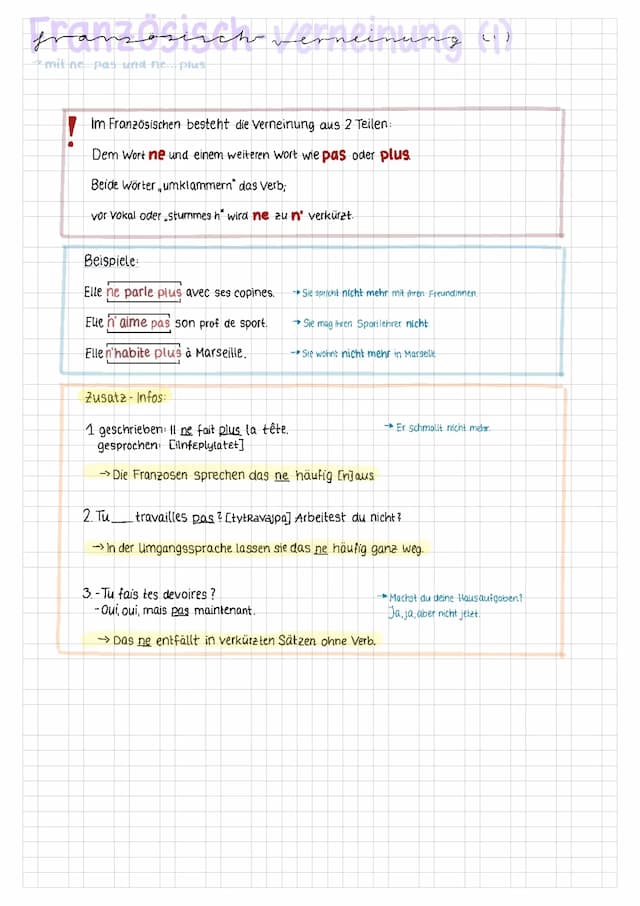 Französisch-Verneinung (1)
→mit ne...pas und ne...plus
! Im Französischen besteht die Verneinung aus 2 Teilen:
Dem Wort ne und einem weiteren Wort wie pas oder plus.
Beide Wörter „umklammern" das Verb;
vor Vokal oder „stummes h" wird ne zu n' verkürzt.
Beispiele:
Elle ne parle plus avec ses copines. → Sie spricht nicht mehr mit ihren Freundinnen.
Elle n'aime pas son prof de sport. → Sie mag ihren Sportlehrer nicht.
Elle n'habite plus à Marseille. → Sie wohnt nicht mehr in Marseille
Zusatz-Infos:
1. geschrieben: Il ne fait plus la tête. → Er schmollt nicht mehr.
gesprochen: [ilnfεplylatεt]
→ Die Franzosen sprechen das ne häufig [n] aus.
2. Tu ___ travailles pas? [tytRavajpa] Arbeitest du nicht?
→ In der Umgangssprache lassen sie das ne häufig ganz weg.
3. -Tu fais tes devoires? → Machst du deine Hausaufgaben?
-Oui, oui, mais pas maintenant. Ja, ja, aber nicht jetzt.
→ Das ne entfällt in verkürzten Sätzen ohne Verb.